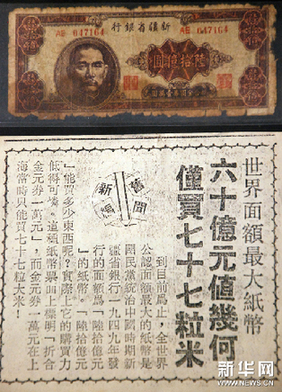 新疆省銀行
AE 647164
AE 647164
陸拾億圓
世界面額最大紙幣
六十億元值幾何
僅買七十七粒米
到目前爲止，全世界
公認面額最大的紙幣是
國民黨統治中國時期新
疆省銀行一九四九年發
行的面額爲「陸拾億元
」的紙幣。「陸拾億元
」能買多少東西呢？實際上它的購買力
低得可憐。這種紙幣票面上標明「折合
金元券一萬元」，而金元券一萬元在上
海當時只能買七十七粒大米！
新华网